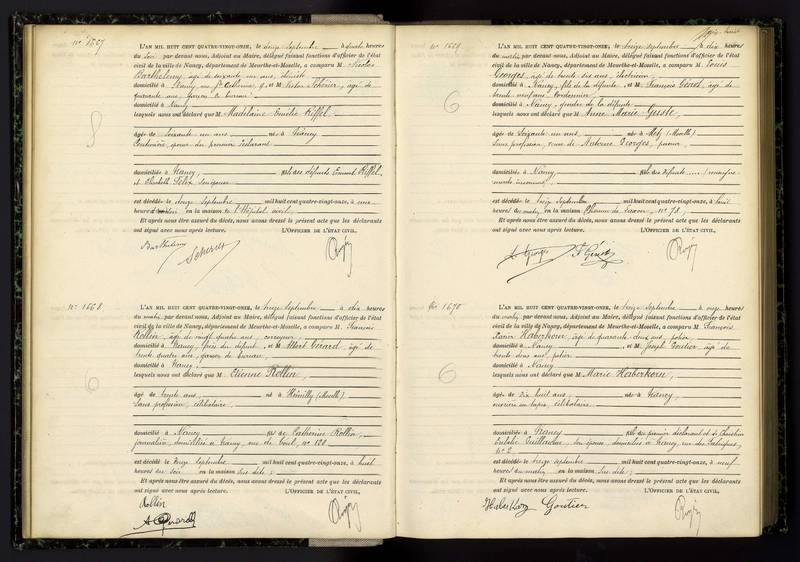 N° 1667
L'AN MIL HUIT CENT QUATRE-VINGT-ONZE, le treize Septembre à heures
du soir par devant nous, Adjoint au Maire, délégué faisant fonctions d'officier de l'état
civil de la ville de Nancy, département de Meurthe-et-Moselle, a comparu M. Nicolas
Barthélemy, âgé de soixante un ans,
domicilié à Nancy, rue Ste Catherine, 9, et M. Scherier, âgé de
quarante ans, garçon de bureau
domicilié à Nancy
lesquels nous ont déclaré que M. Madelaine Emélie Riffel
âgée de Soixante un ans née à Nancy
Couturière, épouse du premier déclarant
domiciliée à Nancy, fille des défunts Riffel
et Elisabeth Felix
est décédée le Septembre mil huit cent quatre-vingt-onze, à une
heure en la maison de l'Hôpital civil
Et après nous être assuré du décès, nous avons dressé le présent acte que les déclarants
ont signé avec nous après lecture. L'OFFICIER DE L'ÉTAT CIVIL,
Barthélemy
8
N° 1668
L'AN MIL HUIT CENT QUATRE-VINGT-ONZE, le treize Septembre à dix heures
du matin, par devant nous, Adjoint au Maire, délégué faisant fonctions d'officier de l'état
civil de la ville de Nancy, département de Meurthe-et-Moselle, a comparu M. François
Rollin, âgé de vingt quatre ans,
domicilié à Nancy, frère du défunt, et M. Albert Girard, âgé de
trente quatre ans, garçon de bureau
domicilié à Nancy
lesquels nous ont déclaré que M. Etienne Rollin
âgé de trente ans né à Rémilly (Moselle)
Sans profession, célibataire
domicilié à Nancy fils de Catherine Rollin,
journalière, domiciliée à Nancy, rue de Toul, n° 128
est décédé le treize Septembre mil huit cent quatre-vingt-onze, à huit
heures du soir en la maison sus dite
Et après nous être assuré du décès, nous avons dressé le présent acte que les déclarants
ont signé avec nous après lecture. L'OFFICIER DE L'ÉTAT CIVIL,
Rollin
6
N° 1669
L'AN MIL HUIT CENT QUATRE-VINGT-ONZE, le treize septembre à dix heures
du matin, par devant nous, Adjoint au Maire, délégué faisant fonctions d'officier de l'état
civil de la ville de Nancy, département de Meurthe-et-Moselle, a comparu M. Louis
Georges, âgé de trente six ans,
domicilié à Nancy, fils de la défunte et M. François Génot, âgé de
trente neuf ans, cordonnier
domicilié à Nancy, gendre de la défunte
lesquels nous ont déclaré que M. Anne Marie Guste
âgée de Soixante ans née à Metz (Moselle)
Sans profession, veuve de Antoine Georges,
domiciliée à Nancy fille des défunts
est décédée le treize Septembre mil huit cent quatre-vingt-onze, à huit
heures du matin, en la maison n° 78
Et après nous être assuré du décès, nous avons dressé le présent acte que les déclarants
ont signé avec nous après lecture. L'OFFICIER DE L'ÉTAT CIVIL,
Georges F. Génot
6
N° 1670
L'AN MIL HUIT CENT QUATRE-VINGT-ONZE, le treize Septembre à onze heures
du matin, par devant nous, Adjoint au Maire, délégué faisant fonctions d'officier de l'état
civil de la ville de Nancy, département de Meurthe-et-Moselle, a comparu M. François
Xavier Haberkorn, âgé de quarante deux ans,
domicilié à Nancy et M. Joseph Goutier âgé de
trente deux ans
domicilié à Nancy
lesquels nous ont déclaré que M. Marie Haberkorn
âgée de Dix huit ans née à Nancy
ouvrière en tapis, célibataire
domiciliée à Nancy fille du premier déclarant et de Christine
Eulalie son épouse, domiciliés à Nancy, rue des
N° 2
est décédée le treize septembre mil huit cent quatre-vingt-onze, à neuf
heures du matin, en la maison sus dite
Et après nous être assuré du décès, nous avons dressé le présent acte que les déclarants
ont signé avec nous après lecture. L'OFFICIER DE L'ÉTAT CIVIL,
Haberkorn Goutier
6